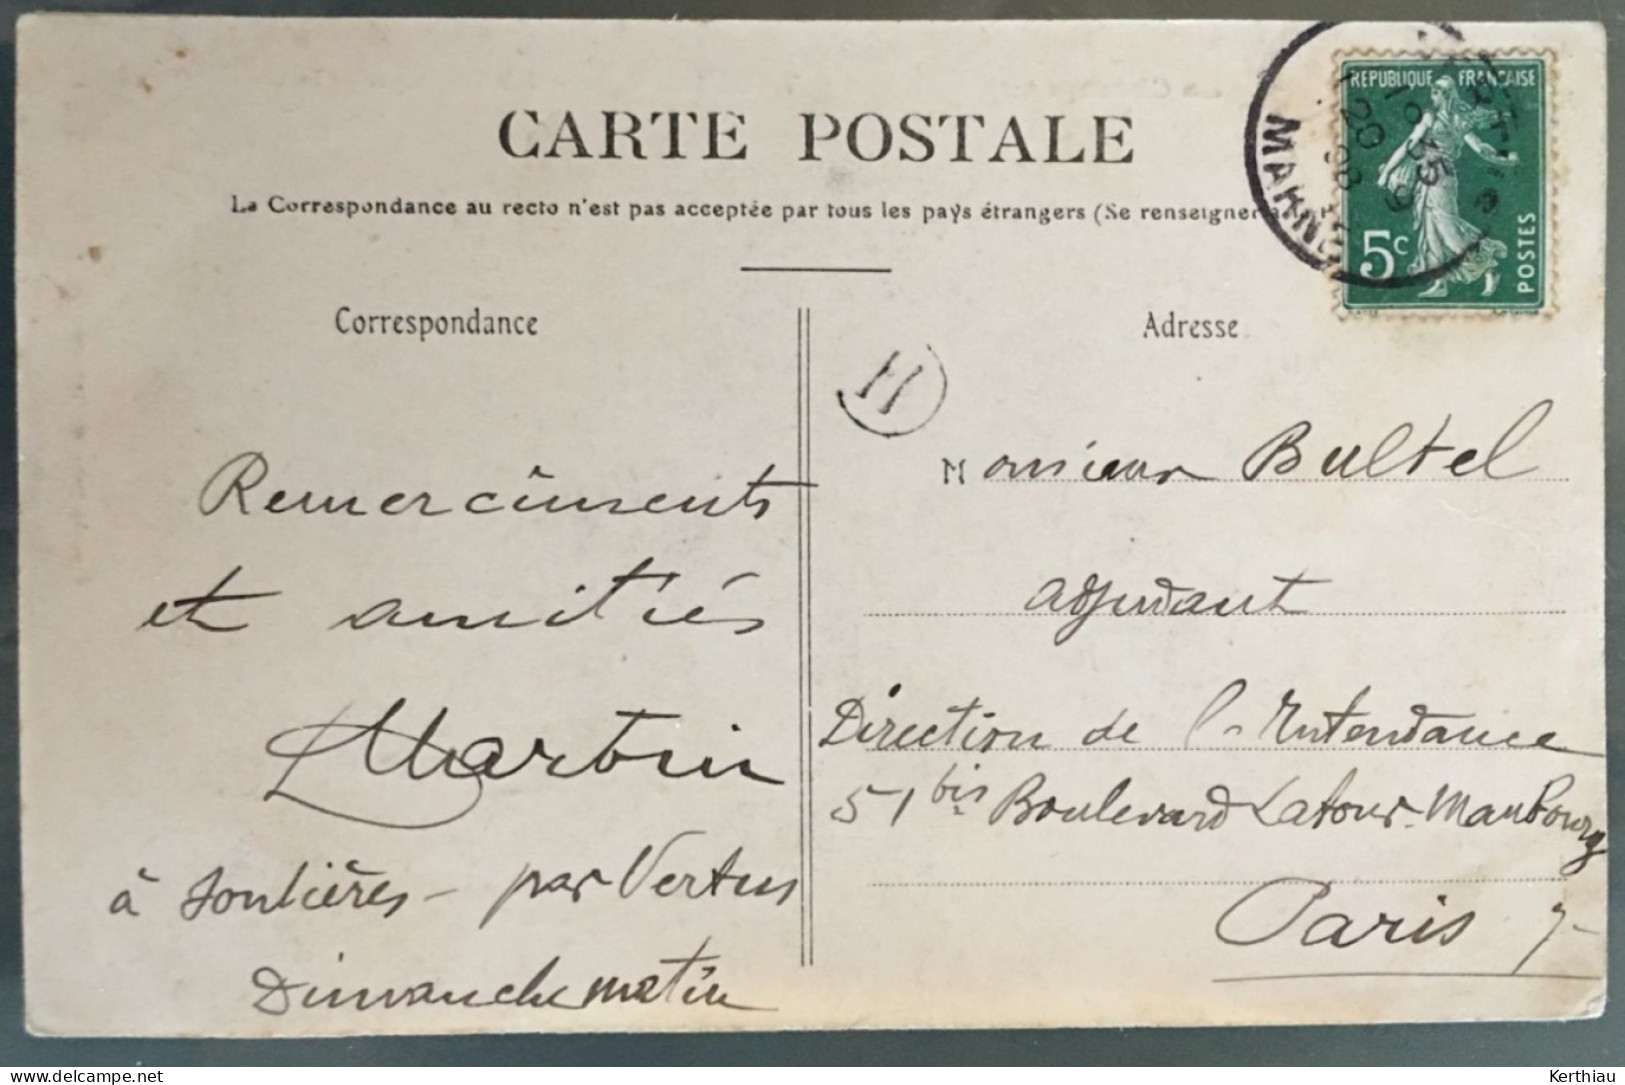 CARTE POSTALE
La Correspondance au recto n'est pas acceptée par tous les pays étrangers (Se renseigner
Correspondance
Remerciments
et amitiés
Martin
à Soulières - par Vertus
Dimanche matin
Adresse
H
Monsieur Bultel
adjudant
Direction de l'Intendance
51 bis Boulevard Latour-Maubourg
Paris 7
REPUBLIQUE FRANÇAISE
5c
POSTES
MARNE
20 9
08
Kerthiau
delcampe.net